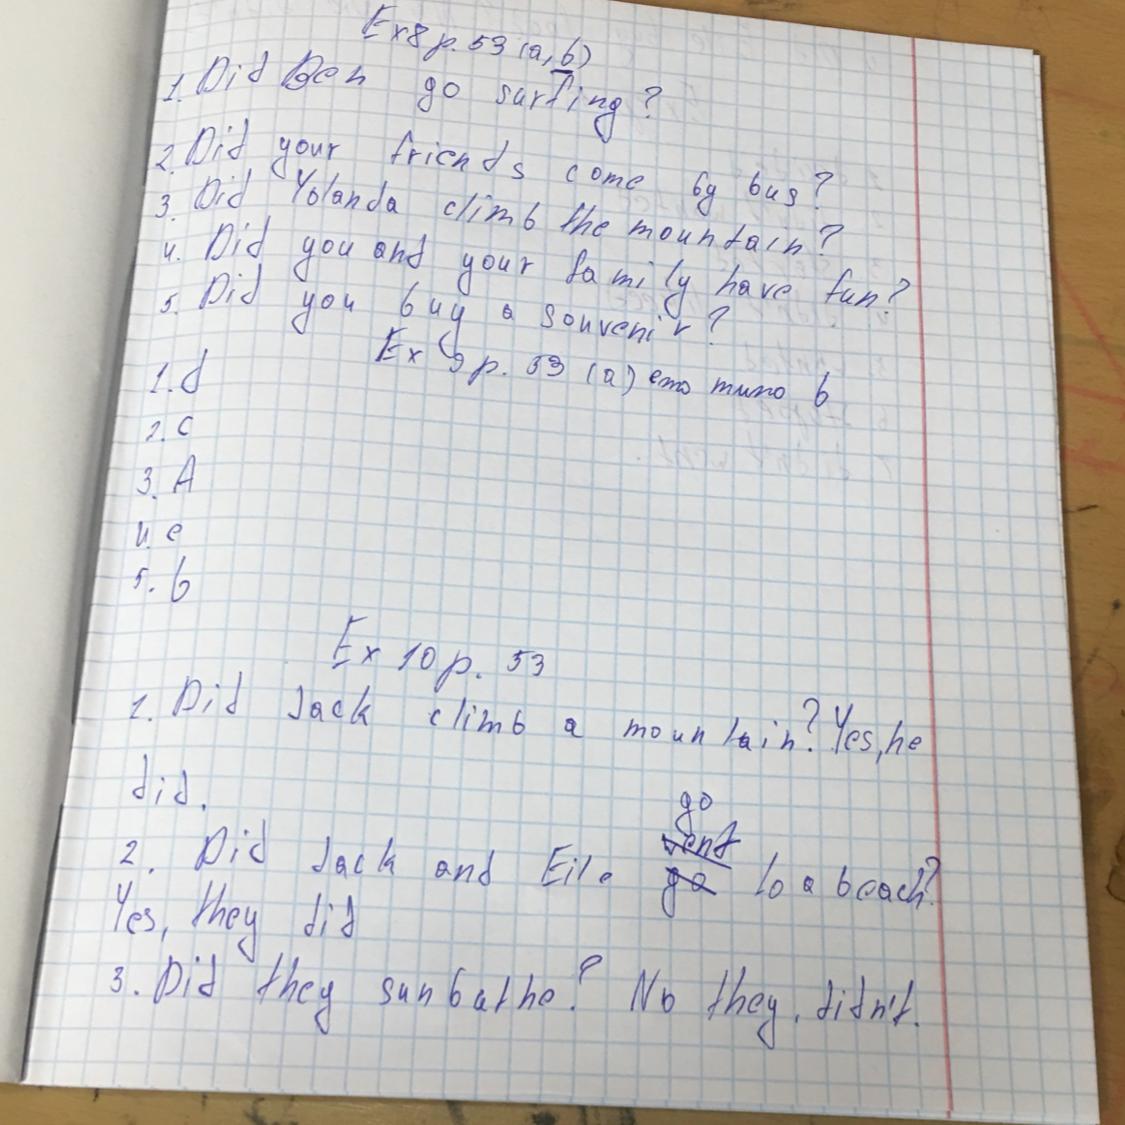 Ex8 p. 53 (a, b)
1. Did Ben go surfing?
2. Did your friends come by bus?
3. Did Yolanda climb the mountain?
4. Did you and your family have fun?
5. Did you buy a souvenir?
Ex 9 p. 53 (a)ето типо b
1. d
2. c
3. A
4. e
5. b
Ex 10 p. 53
1. Did Jack climb a mountain? Yes, he
did.
go
went
2. Did Jack and Eile go to a beach?
Yes, they did
3. Did they sunbathe? No they, didn't.